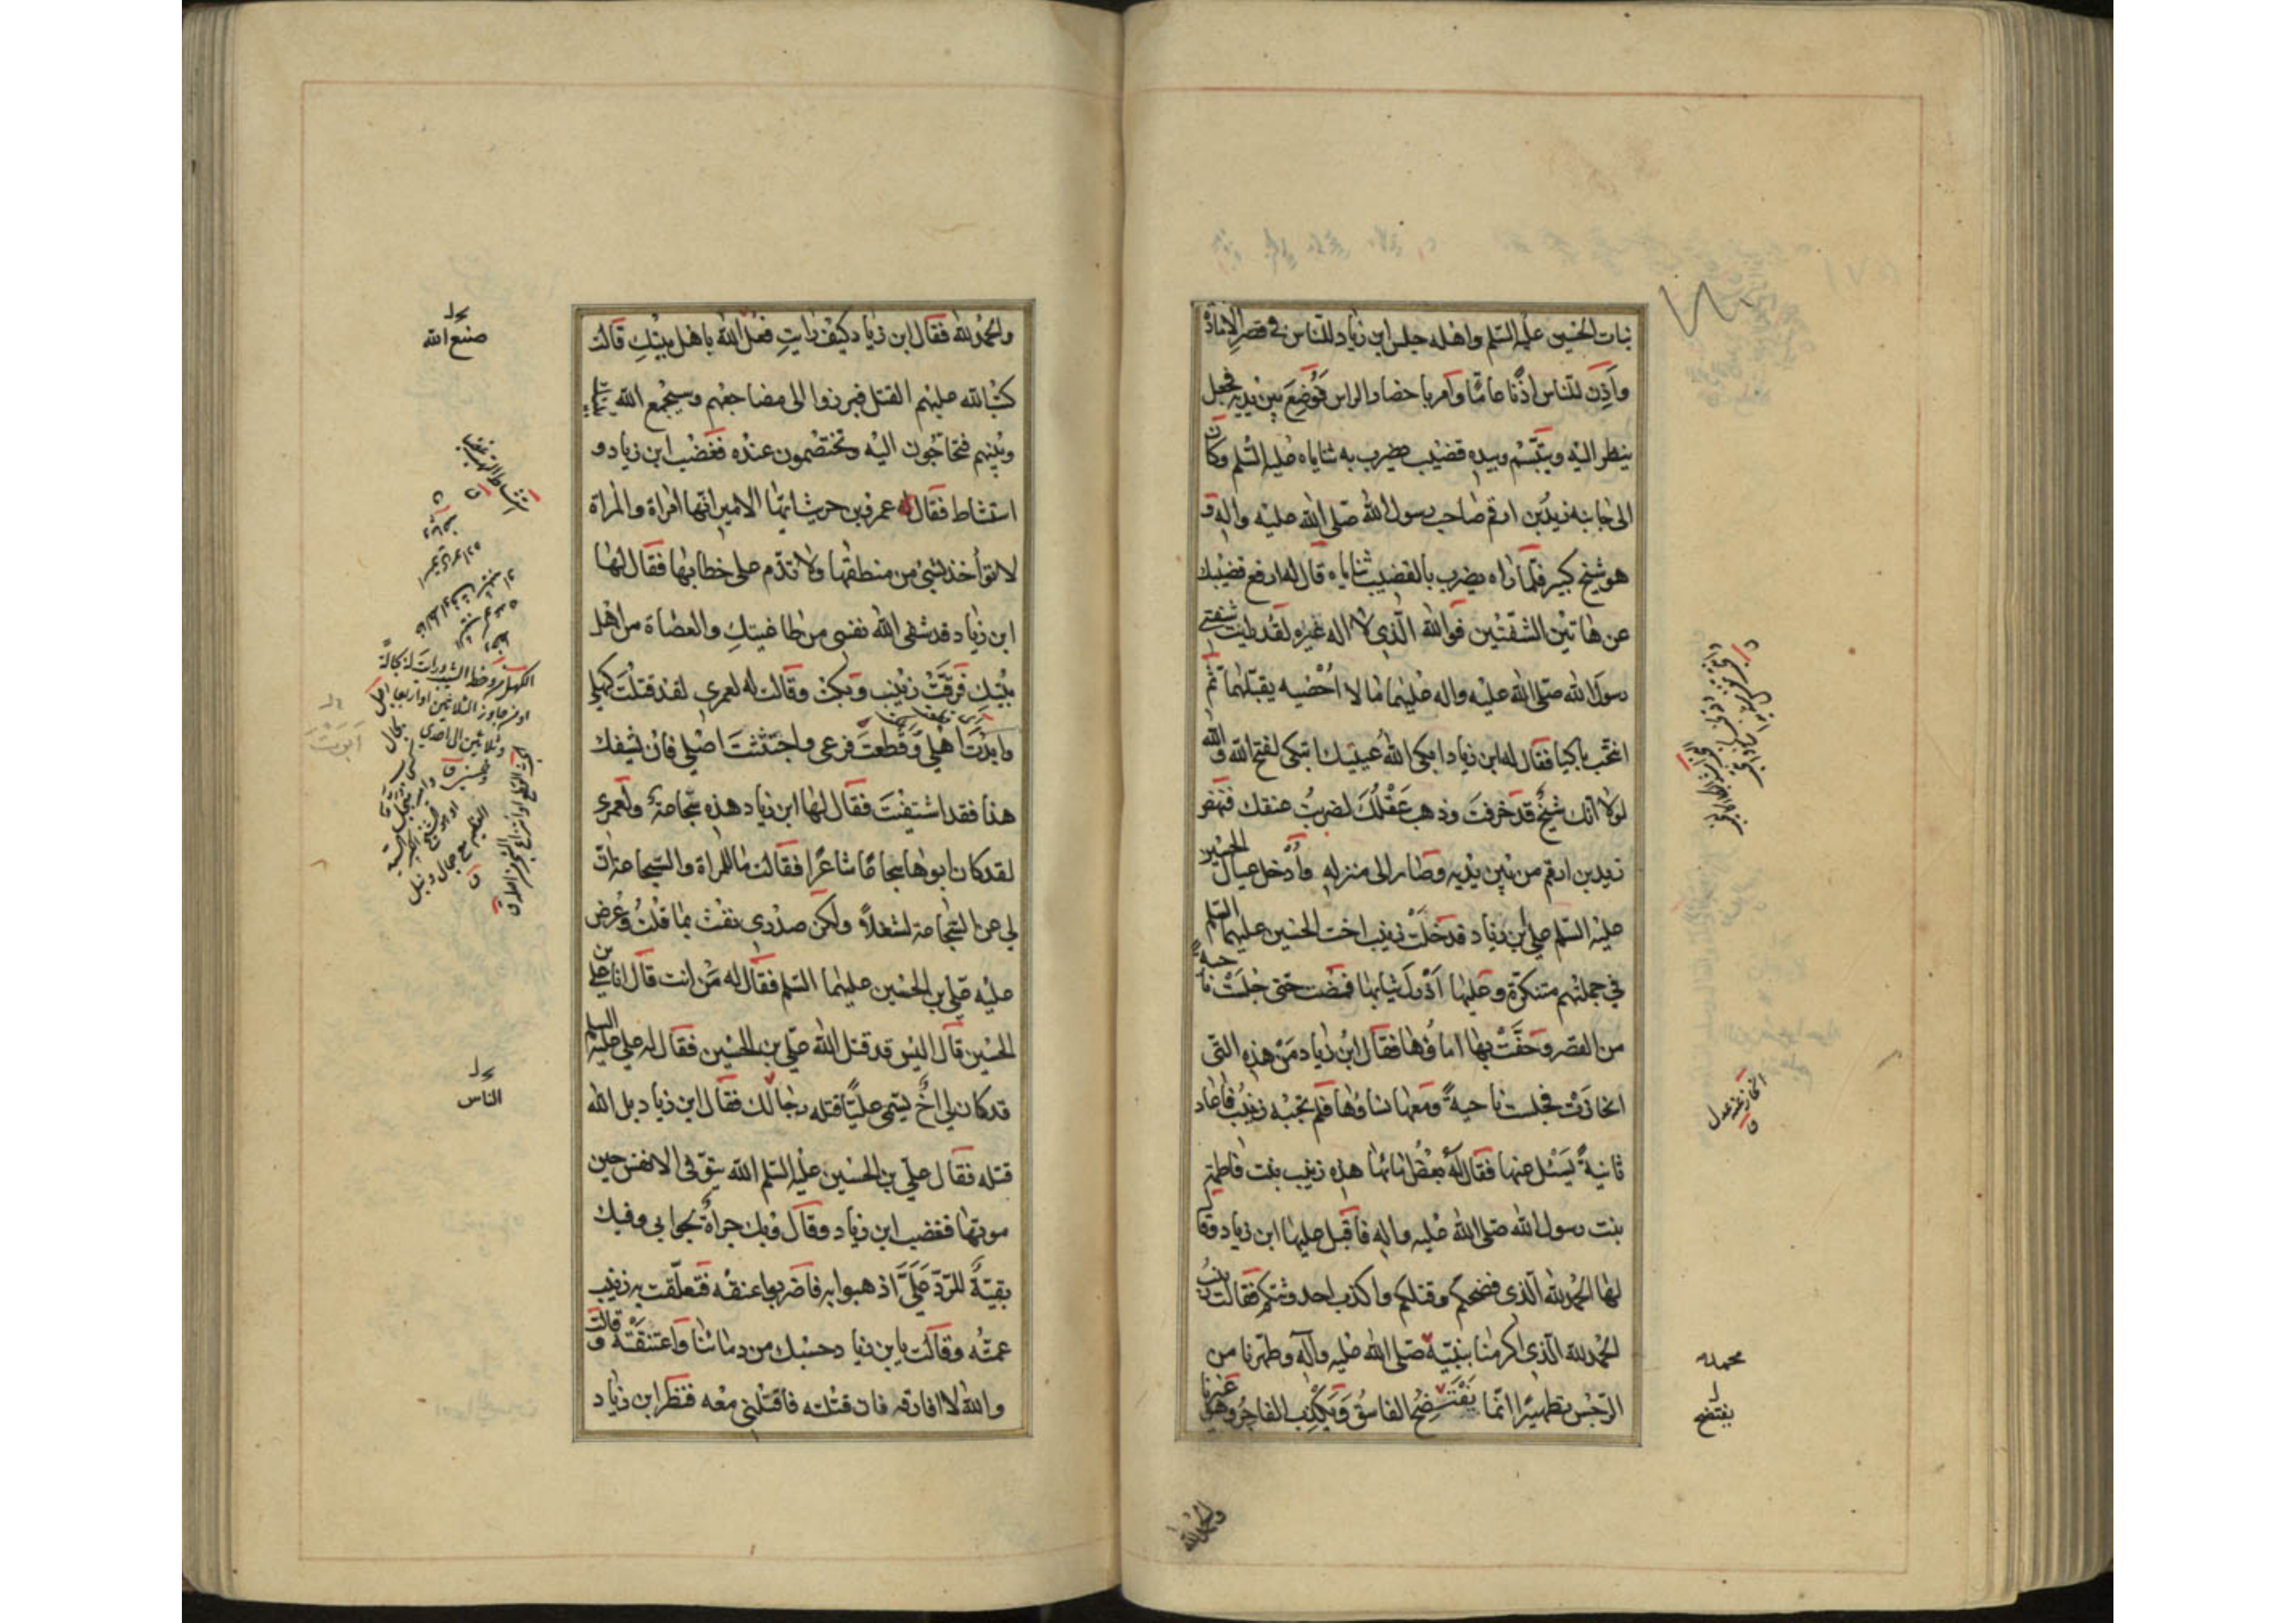 بنات الحسین علیه السلم واهله جلس ابن زیاد للناس فی قصر الامارة
واَذِنَ للناس اذنًا عامًّا وامر باحضار الراس فَوُضِعَ بین یدیه فجعل
ینظر الیه ویتبسّم وبیده قضیب یضرب به ثنایاه علیه السّلم وکان
الی جانبه زید بن ارقم صاحب رسول الله صلی الله علیه واله و
هو شیخ کبیر فلمّا راه یضرب بالقضیب ثنایاه قال له ارفع قضیبك
عن هاتین الشفتین فوالله الّذی لا اله غیره لقد رایت شفتی
رسول الله صلی الله علیه واله علیهما ما لا اُحْصیه یقبّلهما ثم
انتحب باکیا فقال له ابن زیاد ابکی اللهُ عینیك اتبکی لفتح الله والله
لولا انّك شیخٌ قد خرفتَ وذهب عَقْلُكَ لضربتُ عنقك فنهض
زید بن ارقم من بین یدیه وصار الی منزله وأُدْخل عیال الحسین
علیه السّلم علی ابن زیاد فدخلتْ زینب اخت الحسین علیهما السّلم
فی جملتهم متنکّرة وعلیها اَرْذلُ ثیابها فمضت حتی جلَسَتْ ناحیةً
من القصر وحفّتْ بها اماؤها فقال ابن زیاد مَنْ هذه التی
انحازتْ فجلست ناحیةً ومعها نساؤها فلم تجبْه زینبُ فاعاد
ثانیةً یَسْئل عنها فقال لهُ بعْضُ امائها هذه زینب بنت فاطمة
بنت رسول الله صلی الله علیه واله فاقبل علیها ابن زیاد وقال
لها الحمد لله الّذی فضحکم وقتلکم واکذب احدوثتکم فقالت زینب
الحمد لله الّذی اکرمنا بنبیّه صلی الله علیه وآله وطهّرنا من
الرّجْس تطهیرًا انّما یَفْتَضِحُ الفاسقُ وَیَکْذِب الفاجرُ وهو غیرنا
والحمد لله
انحاز عنه عدل
ق
محمد
یفتضح
والحمد لله فقال ابن زیاد کیف رایتِ فعل الله باهل بیتكِ قالت
کتب الله علیهم القتل فبرزوا الی مضاجعهم وسیجمع الله بینك
وبینهم فتحاجّون الیه وتختصمون عنده فغضب ابن زیاد و
استشاط فقال له عمرو بن حریث ایّها الامیر انّها امراة والمراة
لا تؤاخذ بشیئ من منطقها ولا تذمّ علی خطابها فقال لها
ابن زیاد قد شفی الله نفسی من طاغیتكِ والعصاة من اهل
بیْتكِ فرقّتْ زینب وبکتْ وقالت له لعمری لقد قتلتَ کهلی
وابرْتَ اهلی وَقطعتَ فرعی واجتثثتَ اصلی فان یشفك
هذا فقد اشتفیْتَ فقال لها ابن زیاد هذه سجّاعةٌ ولعمری
لقد کان ابوها سجاعًا شاعرًا فقالت ما للمراة والسّجاعة انّ
لی عن السّجاعة لشغلاً ولکن صدْری نفث بما قلتُ وعُرض
علیه علیّ بن الحسین علیهما السّلم فقال له مَنْ انت قال انا علی بن
الحسین قال الیس قد قتل الله علیّ بن الحسین فقال له علی علیه السلم
قد کان لی اخٌ یسمّی علیًّا قتله رجالك فقال ابن زیاد بل الله
قتله فقال علیّ بن الحسین علیه السّلم الله یتوفّی الانفس حین
موتها فغضب ابن زیاد وقال وبك جراةٌ لجوابی وفیك
بقیّةٌ للرّدّ علیَّ اذهبوا به فاضربوا عنقه فتعلّقت به زینب
عمّتُه وقالت یابن زیاد حسْبك من دمائنا واعتنقتْه وقالت
والله لا افارقه فان قتلته فاقتلنی معه فنظر ابن زیاد
صنع الله
الناس